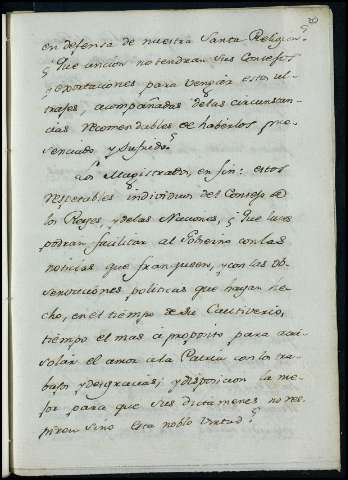 en defensa de nuestra Santa Religion?
¿Que uncion no tendran sus Consejos
y exortaciones para vengar estos ul-
trajes, acompañadas de las circunstan-
cias recomendables de haberlos pre-
senciado y sufrido?
Los Magistrados, en fin: estos
respetables individuos del Consejo de
los Reyes, y de las Naciones, ¿Que luces
podran facilitar al Gobierno con las
noticias que franqueen, y con las ob-
servaciones politicas que hayan he-
cho, en el tiempo de su Cautiverio,
tiempo el mas á proposito para acri-
solar el amor a la Patria con los tra-
bajos y desgracias; y disposicion la me-
jor para que sus dictamenes no res-
piren sino esta noble virtud?